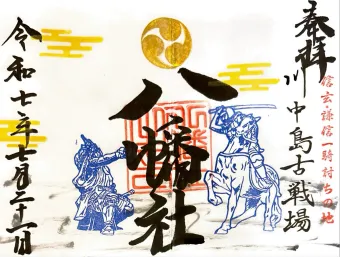 奉拝
信玄・謙信一騎討ちの地
川中島古戦場
八幡社
令和七年七月二十一日